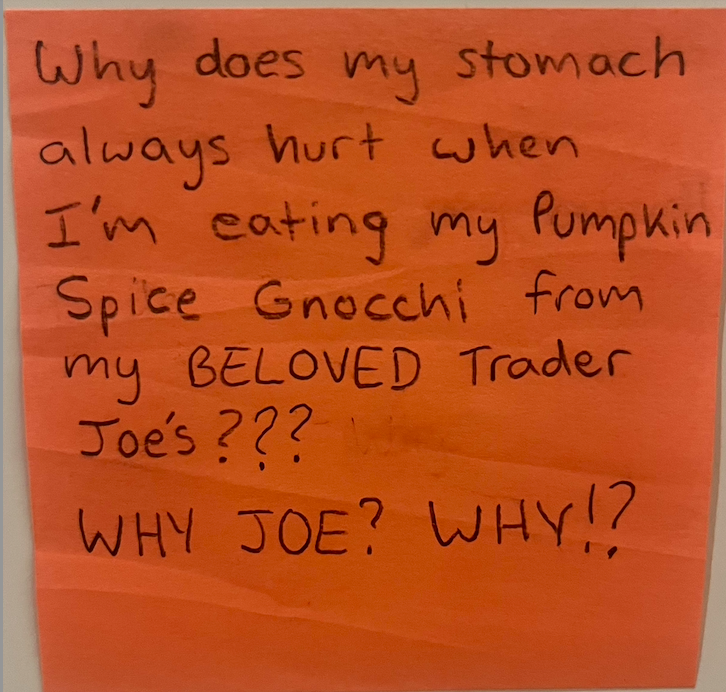 Why does my stomach
always hurt when
I'm eating my Pumpkin
Spice Gnocchi from
my BELOVED Trader
Joe's???
WHY JOE? WHY!?